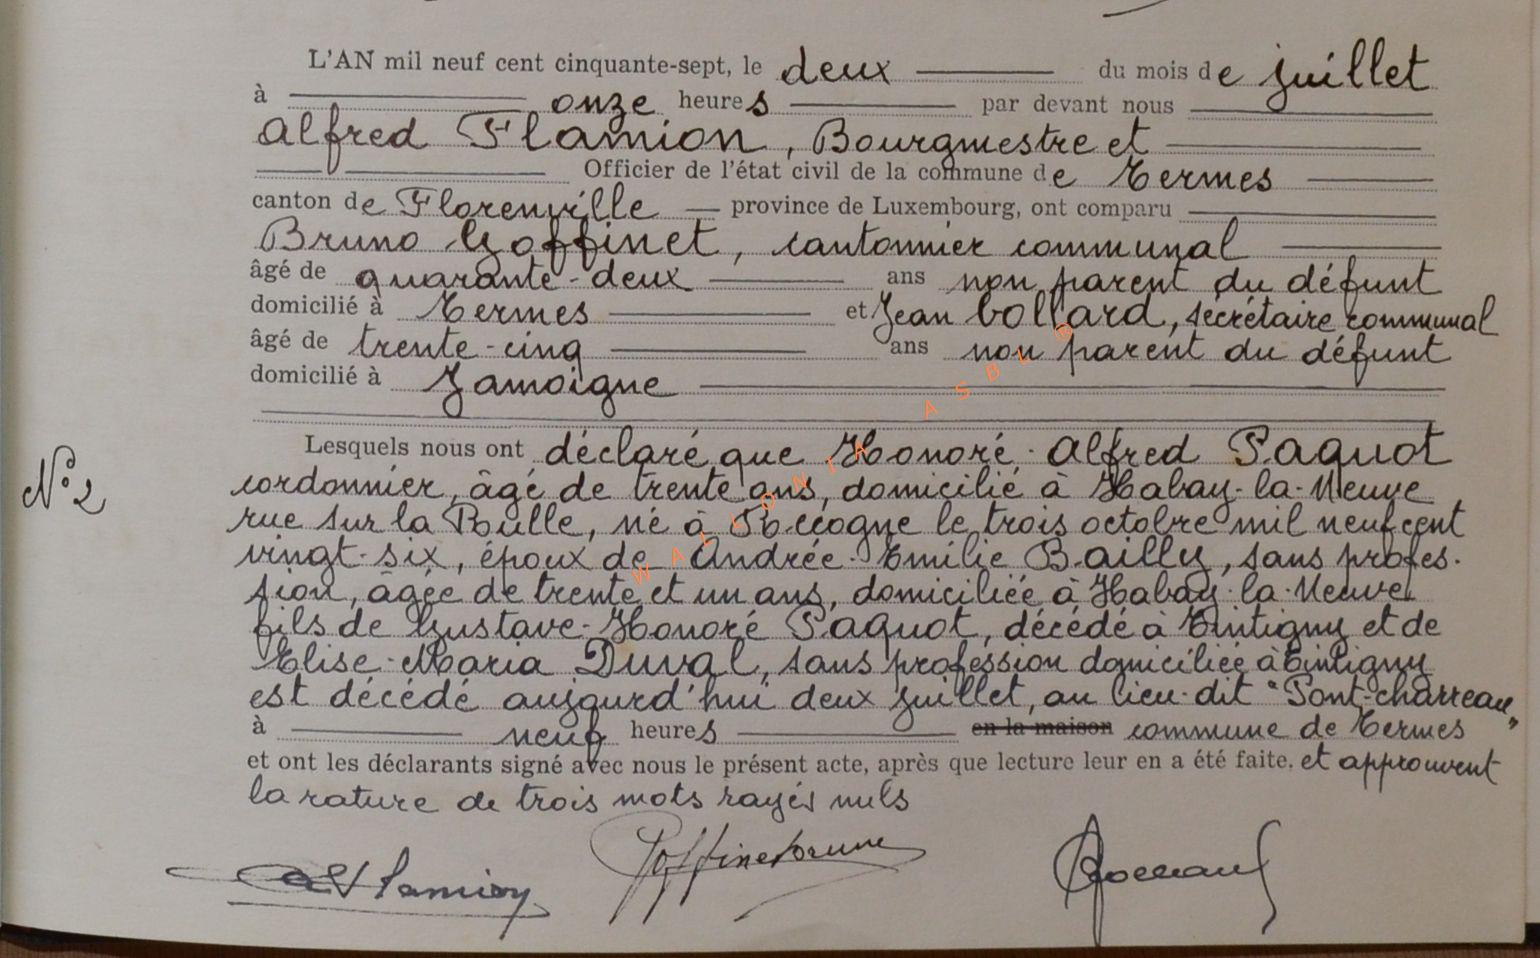 L'AN mil neuf cent cinquante-sept, le deux du mois de juillet
à onze heures par devant nous
Alfred Flamion, Bourgmestre et
Officier de l'état civil de la commune de Termes
canton de Florenville province de Luxembourg, ont comparu
Bruno Goffinet, cantonnier communal
âgé de quarante-deux ans non parent du défunt
domicilié à Termes et Jean Collard, secrétaire communal
âgé de trente-cinq ans non parent du défunt
domicilié à Jamoigne
Lesquels nous ont déclaré que Honoré-Alfred Paquot
N° 2
cordonnier, âgé de trente ans, domicilié à Habay-la-Neuve
rue sur la Rulle, né à Recogne le trois octobre mil neuf cent
vingt-six, époux de Andrée-Emilie Bailly, sans profes-
sion, âgée de trente et un ans, domiciliée à Habay-la-Neuve
fils de Gustave-Honoré Paquot, décédé à Tintigny et de
Elise-Maria Duval, sans profession domiciliée à Tintigny
est décédé aujourd'hui deux juillet, au lieu-dit "Pont-charreau"
à neuf heures en la maison commune de Termes
et ont les déclarants signé avec nous le présent acte, après que lecture leur en a été faite. et approuvent
la rature de trois mots rayés nuls
Alf Flamion Goffinet Bruno
WALLONIA ASBL ®